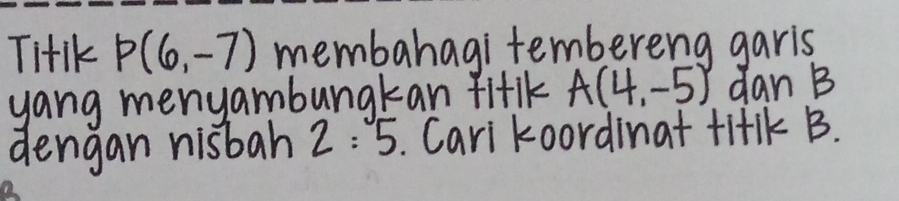 Titik P(6,-7) membahagi tembereng garis
yang menyambungkan titik A(4,-5) dan B
dengan nisbah 2 : 5. Cari koordinat titik B.